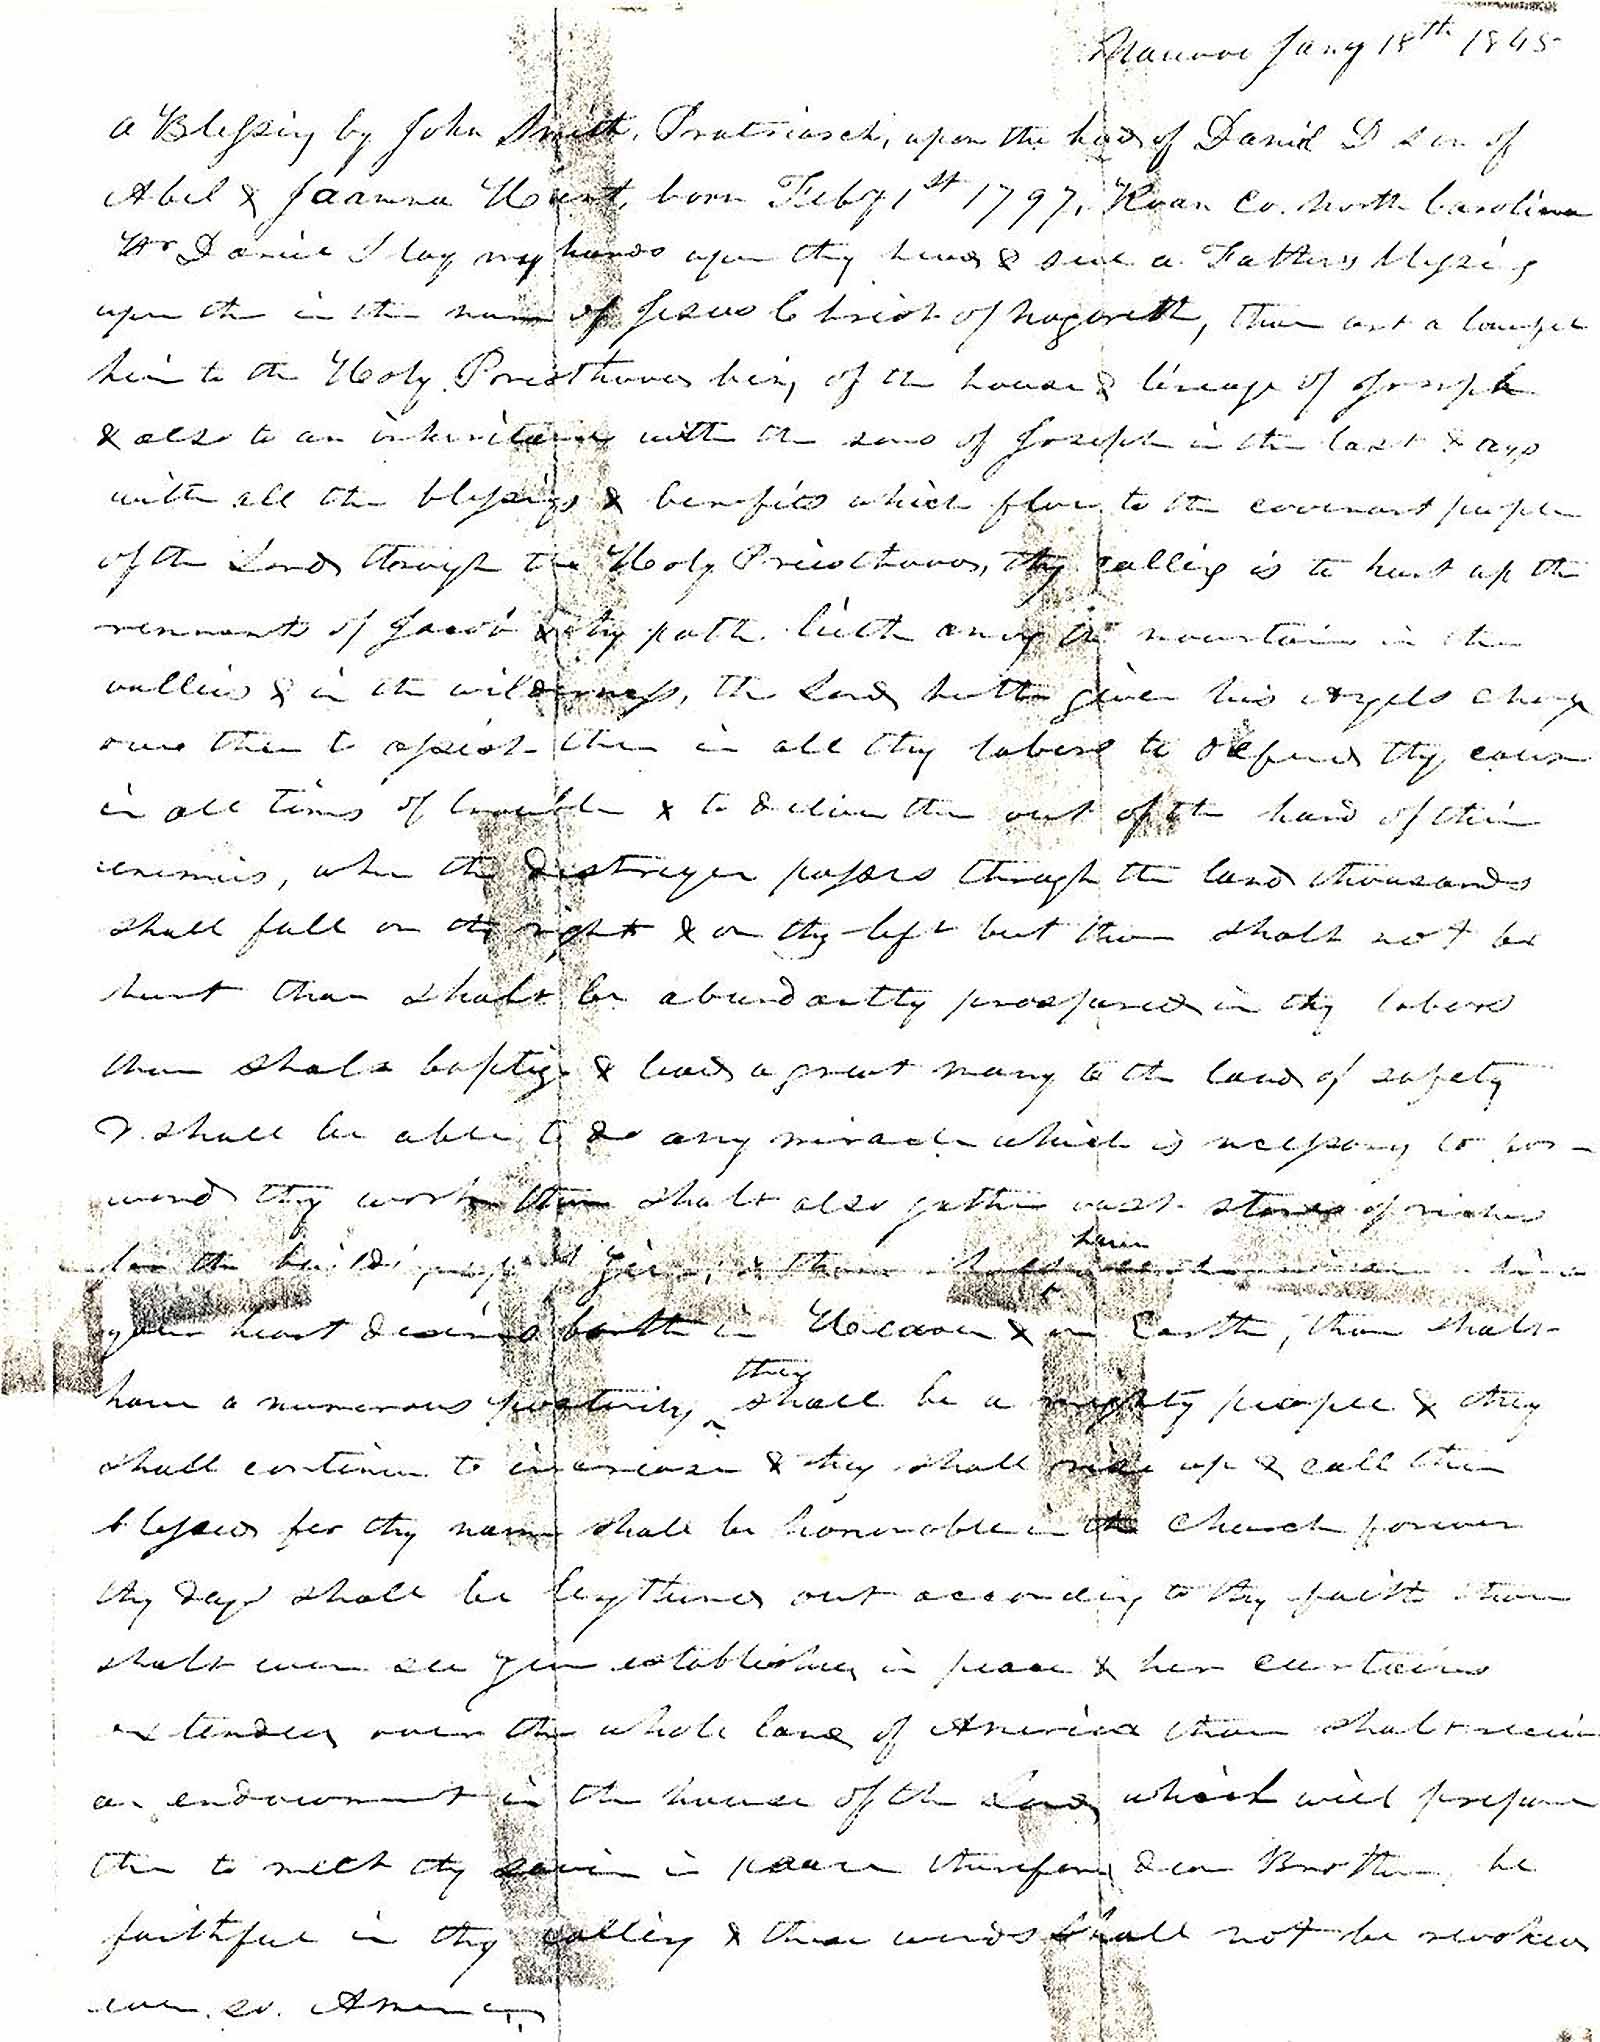 Nauvoo Jany 18th 1845
A Blessing by John Smith, Pratriarch, upon the head of Daniel D son of
Abel & Joanna Hunt, born Feby 1st 1797, Roan Co. North Carolina
Br Daniel I lay my hands upon thy head & seal a Fathers blessing
upon the in the name of Jesus Christ of Nazareth, thou art a lawful
heir to the Holy Priesthood being of the house & lineage of Joseph
& also to an inheritance with the sons of Joseph in the last days
with all the blessings & benefits which flow to the covenant people
of the Lord through the Holy Priesthood, thy calling is to hunt up the
remnants of Jacob & thy path lieth among the mountains in the
vallies & in the wilderness, the Lord hath given his Angels charge
over thee to assist thee in all thy labers to defend thy cause
in all times of trouble & to deliver thee out of the hand of thine
enemies, when the destroyer passes through the land thousands
shall fall on thy right & on thy left but thou shalt not be
hurt thou shalt be abundantly prospered in thy labers
thou shalt baptize & lead a great many to the land of safety
& shall be able to do any miracle which is necessary to for-
ward thy work thou shalt also gather vast stores of riches
for the building up of Zion, & thou shalt have
your heart desires both in Heaven & on Earth, thou shalt
have a numerous posterity they shall be a mighty people & they
shall continue to increase & they shall rise up & call thee
blessed for thy name shall be honorable in the Church forever
thy days shall be lengthened out according to thy faith thou
shalt even see Zion established in peace & her curtains
extended over the whole land of America thou shalt receive
an endowment in the house of the Lord which will prepare
thee to meet thy savior in peace therefore dear Brother be
faithful in thy calling & these words shall not be revoked
even so. Amen